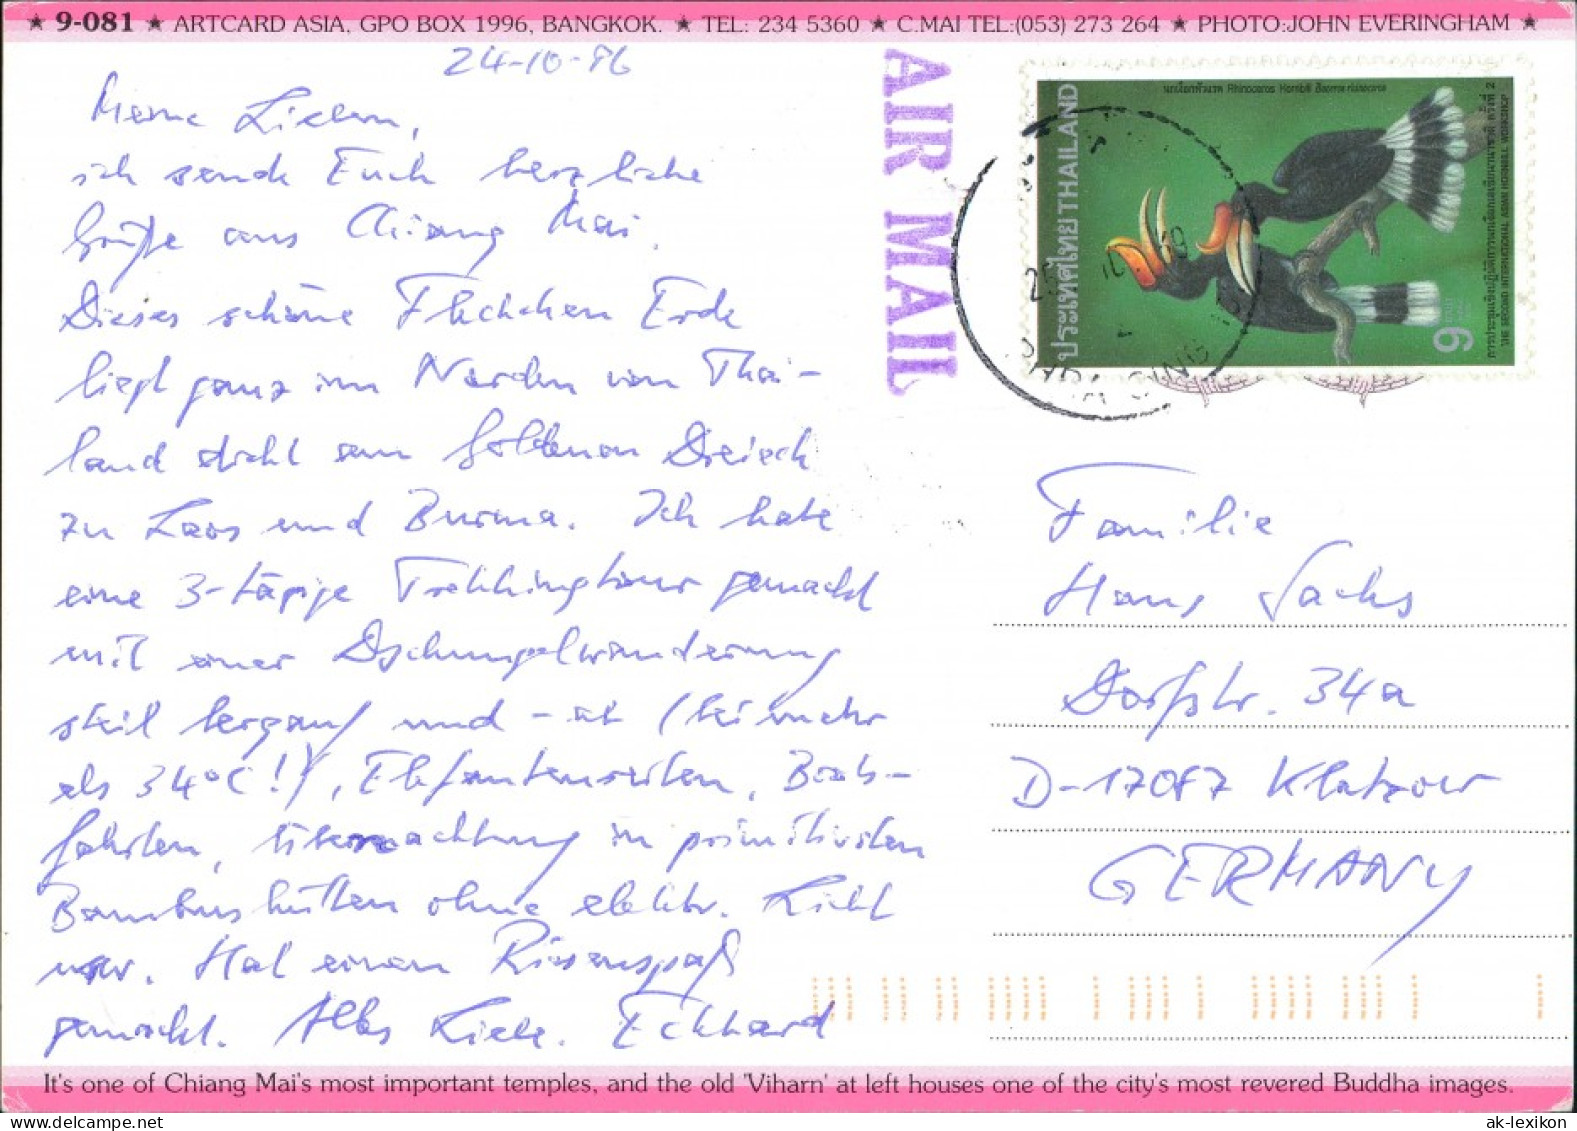 ★ 9-081 ★ ARTCARD ASIA, GPO BOX 1996, BANGKOK. ★ TEL: 234 5360 ★ C.MAI TEL:(053) 273 264 ★ PHOTO:JOHN EVERINGHAM ★
24-10-96
Meine Lieben,
ich sende Euch herzliche
Grüße aus Chiang Mai.
Dieses schöne Fleckchen Erde
liegt ganz im Norden von Thai-
land dicht am Goldenen Dreieck
zu Laos und Burma. Ich habe
eine 3-tägige Trekkingtour gemacht
mit einer Dschungelwanderung
steil bergauf und -ab (bei mehr
als 34°C!), Elefantenreiten, Boots-
fahrten, Übernachtung in primitivsten
Bambushütten ohne elektr. Licht
usw. Hat einen Riesenspaß
gemacht. Alles Liebe. Eckhard
AIR MAIL
ประเทศไทย THAILAND
นกเงือกหัวแรด Rhinoceros Hornbill Buceros rhinoceros
9
การประชุมเชิงปฏิบัติการนกเงือกเอเชียนานาชาติ ครั้งที่ 2
THE SECOND INTERNATIONAL ASIAN HORNBILL WORKSHOP
Familie
Hans Sachs
Dorfstr. 34a
D-17087 Klatzow
GERMANY
It's one of Chiang Mai's most important temples, and the old 'Viharn' at left houses one of the city's most revered Buddha images.
ak-lexikon